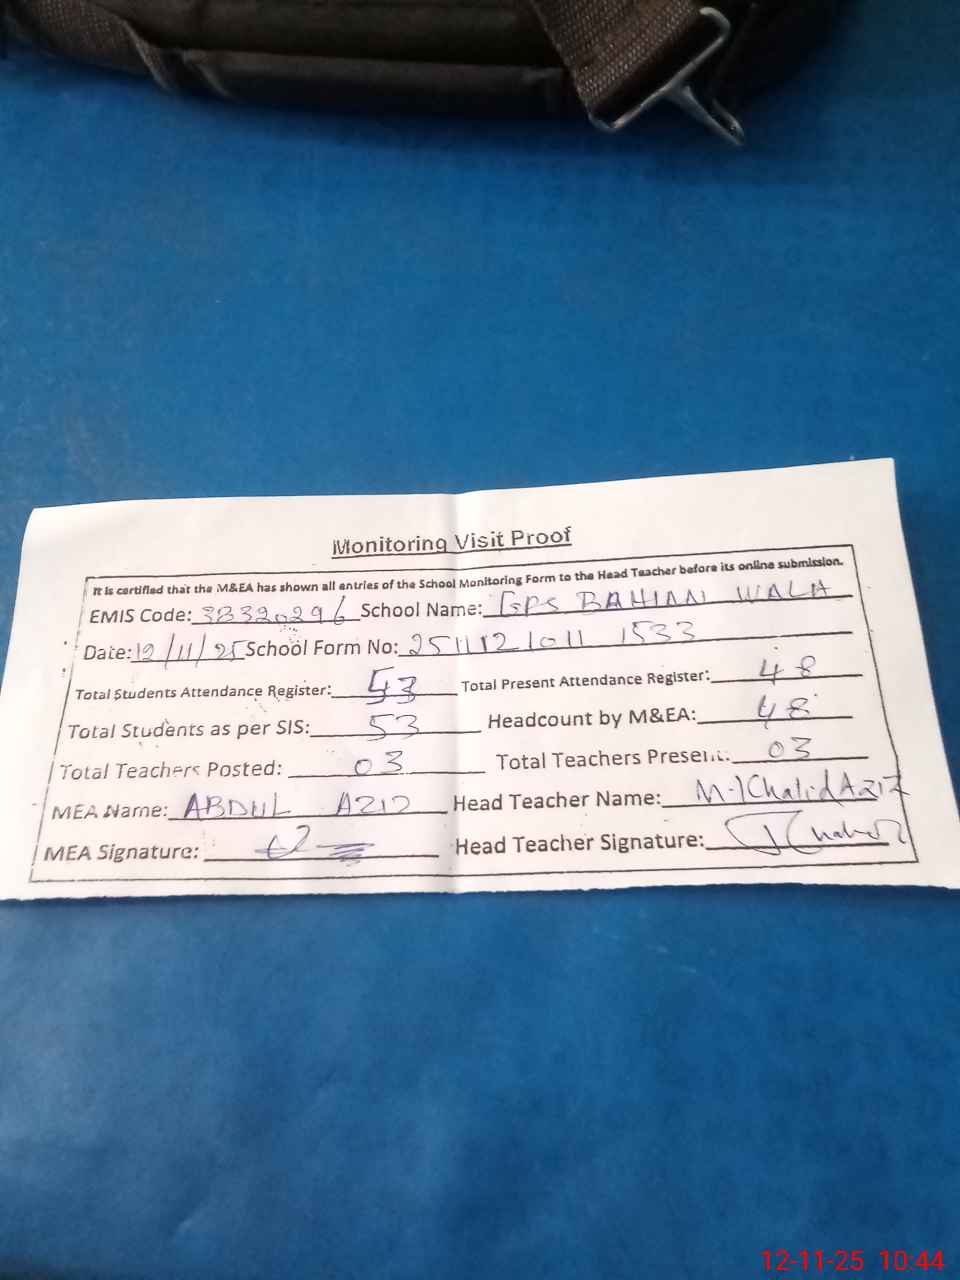 Monitoring Visit Proof
It is certified that the M&EA has shown all entries of the School Monitoring Form to the Head Teacher before its online submission.
EMIS Code: 38320296 School Name: GPS BAHIAN WALA
Date: 12/11/25 School Form No: 251112 1011 1533
Total Students Attendance Register: 53 Total Present Attendance Register: 48
Total Students as per SIS: 53 Headcount by M&EA: 48
Total Teachers Posted: 03 Total Teachers Present: 03
MEA Name: ABDUL AZIZ Head Teacher Name: M-Khalid Aziz
MEA Signature: Head Teacher Signature:
12-11-25 10:44